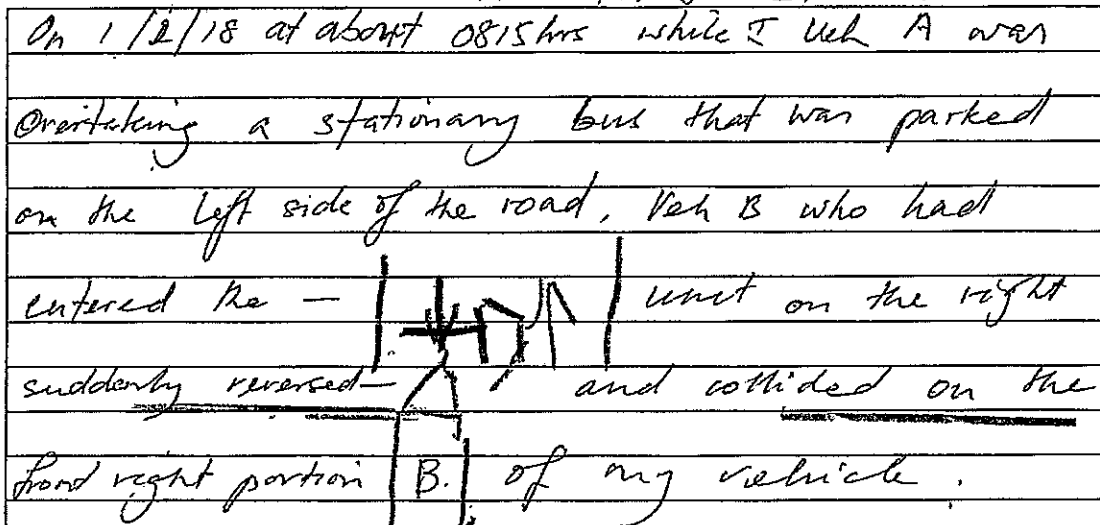 On 1/2/18 at about 0815hrs while I Veh A was
Overtaking a stationary bus that was parked
on the left side of the road, Veh B who had
entered the — unit on the right
suddenly reversed — and collided on the
front right portion B. of my vehicle.